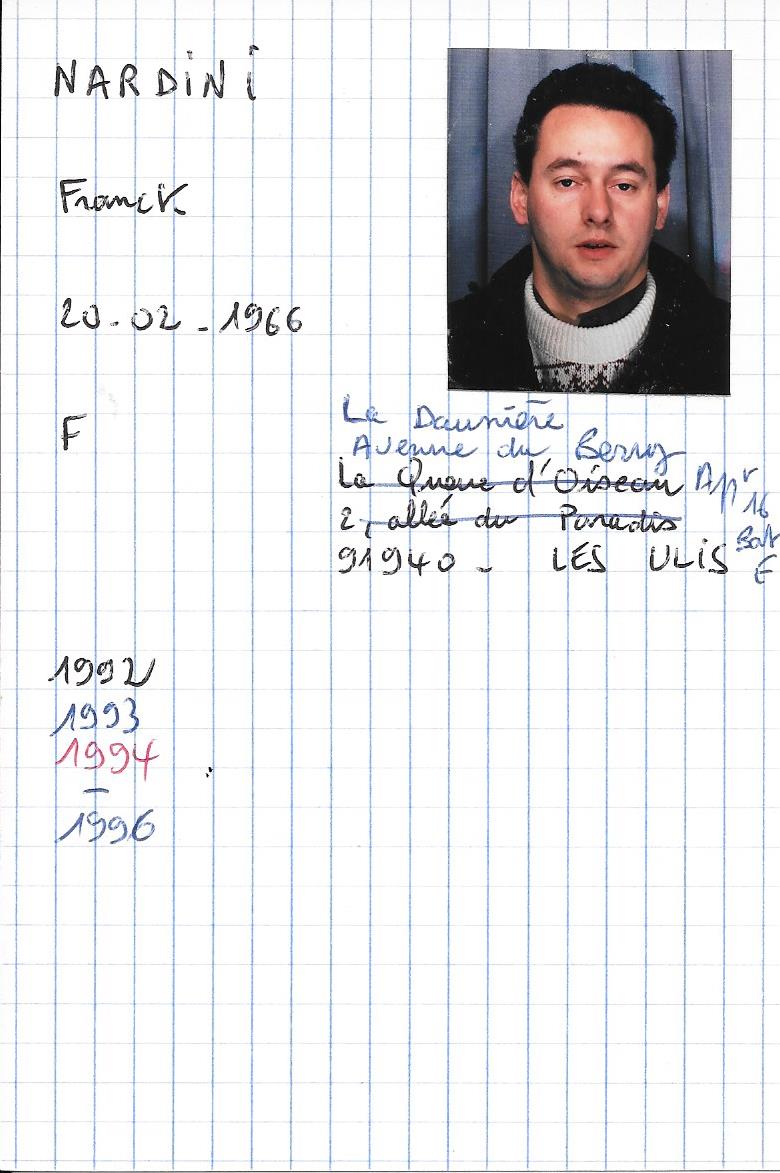 NARDINI
Franck
20-02-1966
F
La Daunière
Avenue du Berry
La Queue d'Oiseau Apt 16
2, allée du Paradis Bat E
91940 - LES ULIS
1992
1993
1994
-
1996